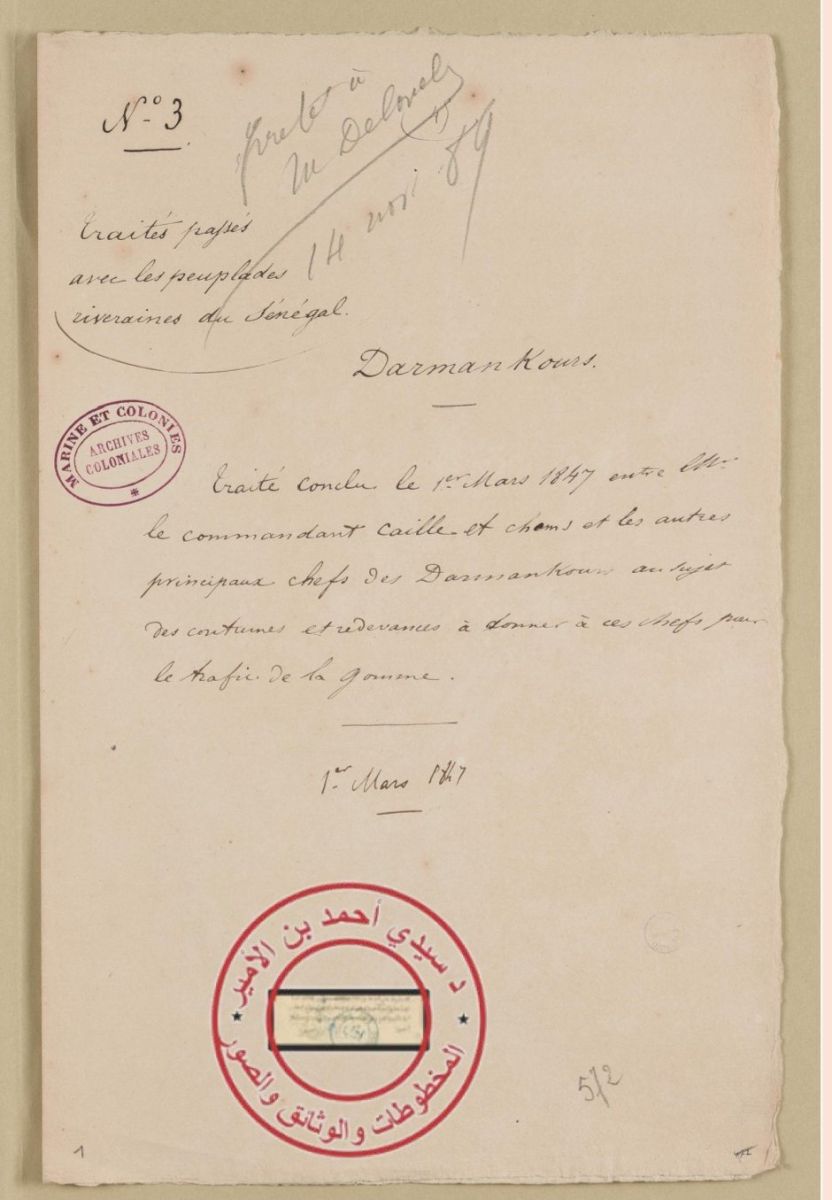 N.º 3
prêté à
M Deloncle
14 nov. 89
Traités passés
avec les peuplades
riveraines du Sénégal.
Darmankours.
MARINE ET COLONIES
ARCHIVES
COLONIALES
Traité conclu le 1er Mars 1847 entre Mr
le commandant Caille et chems et les autres
principaux chefs des Darmankours au sujet
des coutumes et redevances à donner à ces chefs pour
le trafic de la gomme.
1er Mars 1847
د سيدي أحمد بن الأمير
المخطوطات والوثائق والصور
5/2
1